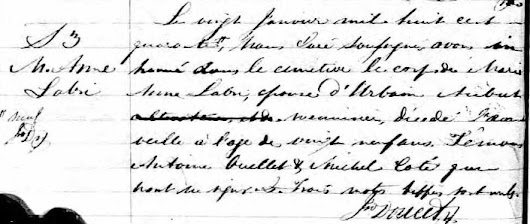 S 3
M. Anne
Labri
neuf
Le vingt Janvier mil huit cent
quarante, Nous Curé soussigné, avons in
humé dans le cimetière le corps de Marie
Anne Labri, épouse d'Urbain
menuisier, décédé
veille à l'age de vingt neuf ans. Témoins
Antoine Ouellet & Michel Coté qui
n'ont su signer. Trois mots biffés sont nuls.
Doucet